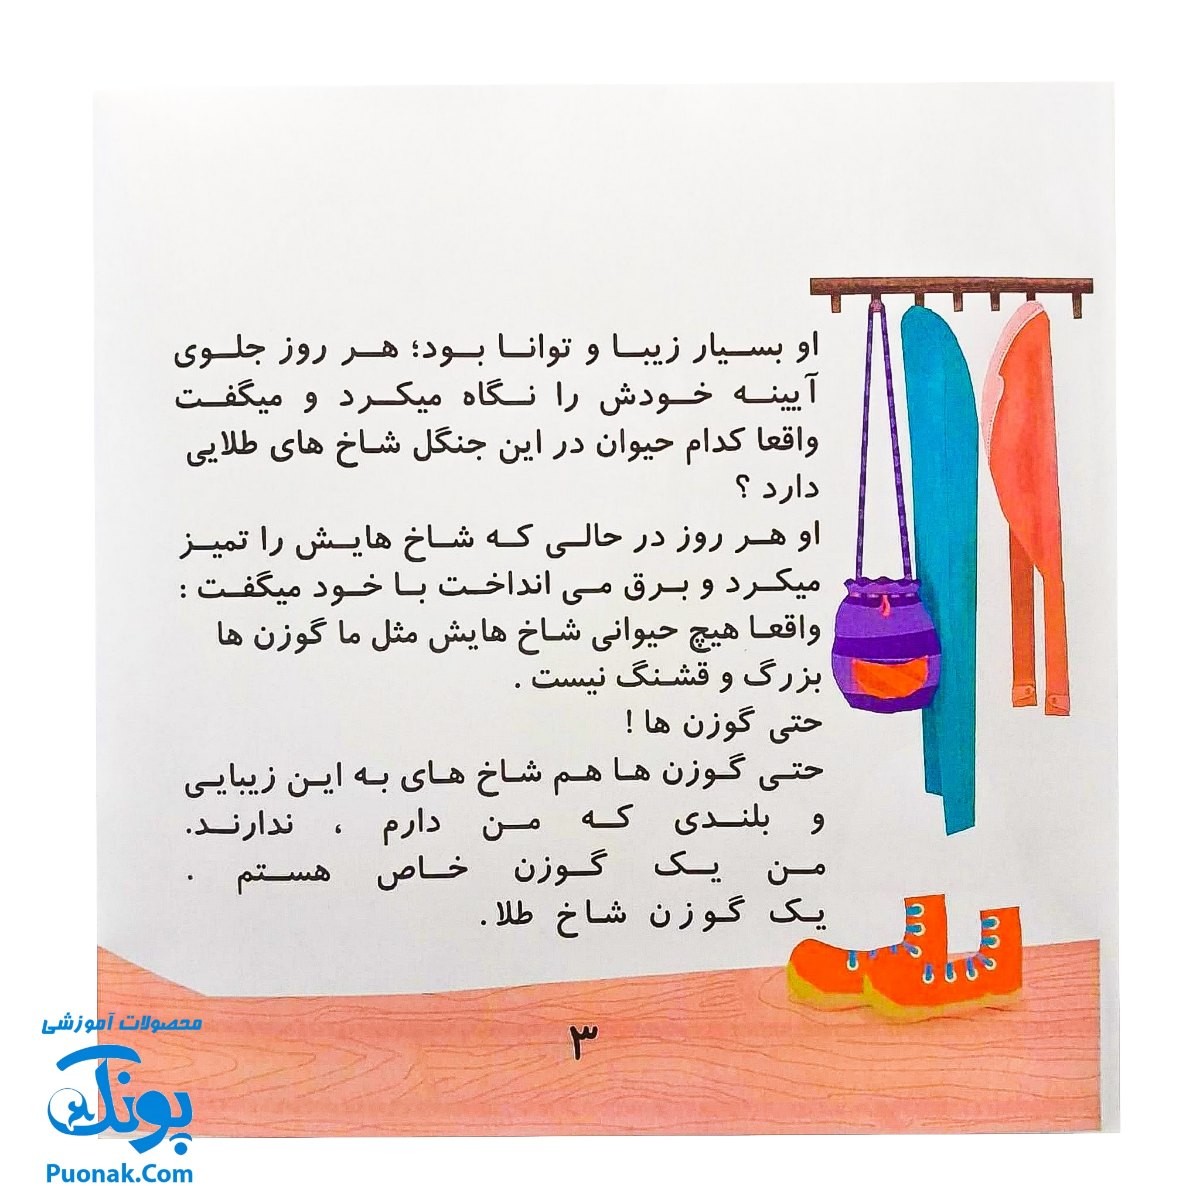 او بسیار زیبا و توانا بود؛ هر روز جلوی
آیینه خودش را نگاه میکرد و میگفت
واقعا کدام حیوان در این جنگل شاخ های طلایی
دارد ؟
او هر روز در حالی که شاخ هایش را تمیز
میکرد و برق می انداخت با خود میگفت :
واقعا هیچ حیوانی شاخ هایش مثل ما گوزن ها
بزرگ و قشنگ نیست .
حتی گوزن ها !
حتی گوزن ها هم شاخ های به این زیبایی
و بلندی که من دارم ، ندارند.
من یک گوزن خاص هستم .
یک گوزن شاخ طلا .
۳
محصولات آموزشی
پونک
Puonak.Com